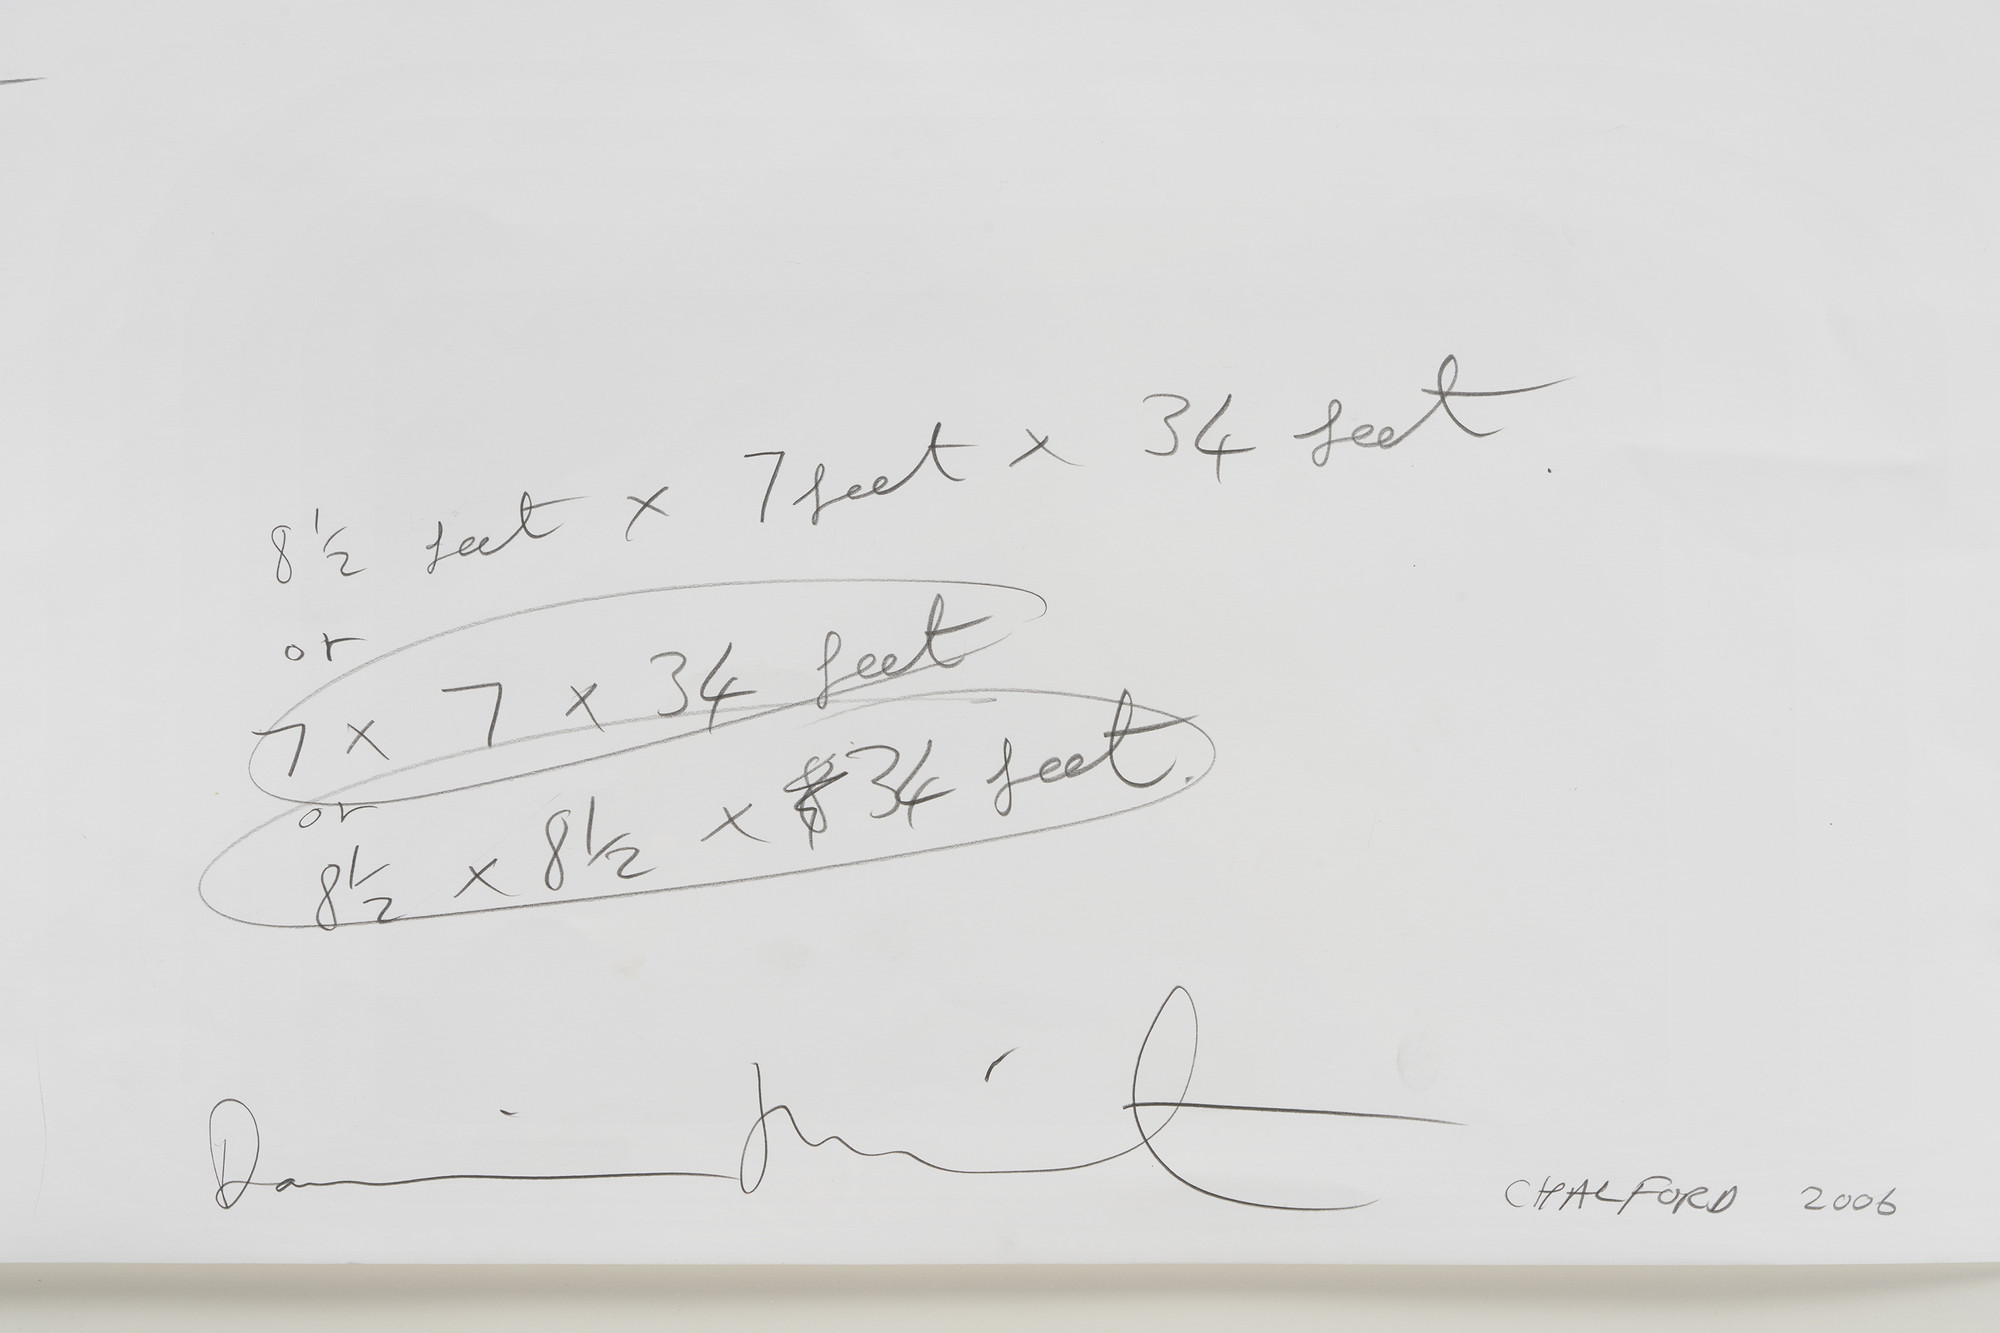 8½ feet x 7 feet x 34 feet.
or
7 x 7 x 34 feet
or
8½ x 8½ x 34 feet.
Damien Hirst
CHALFORD 2006